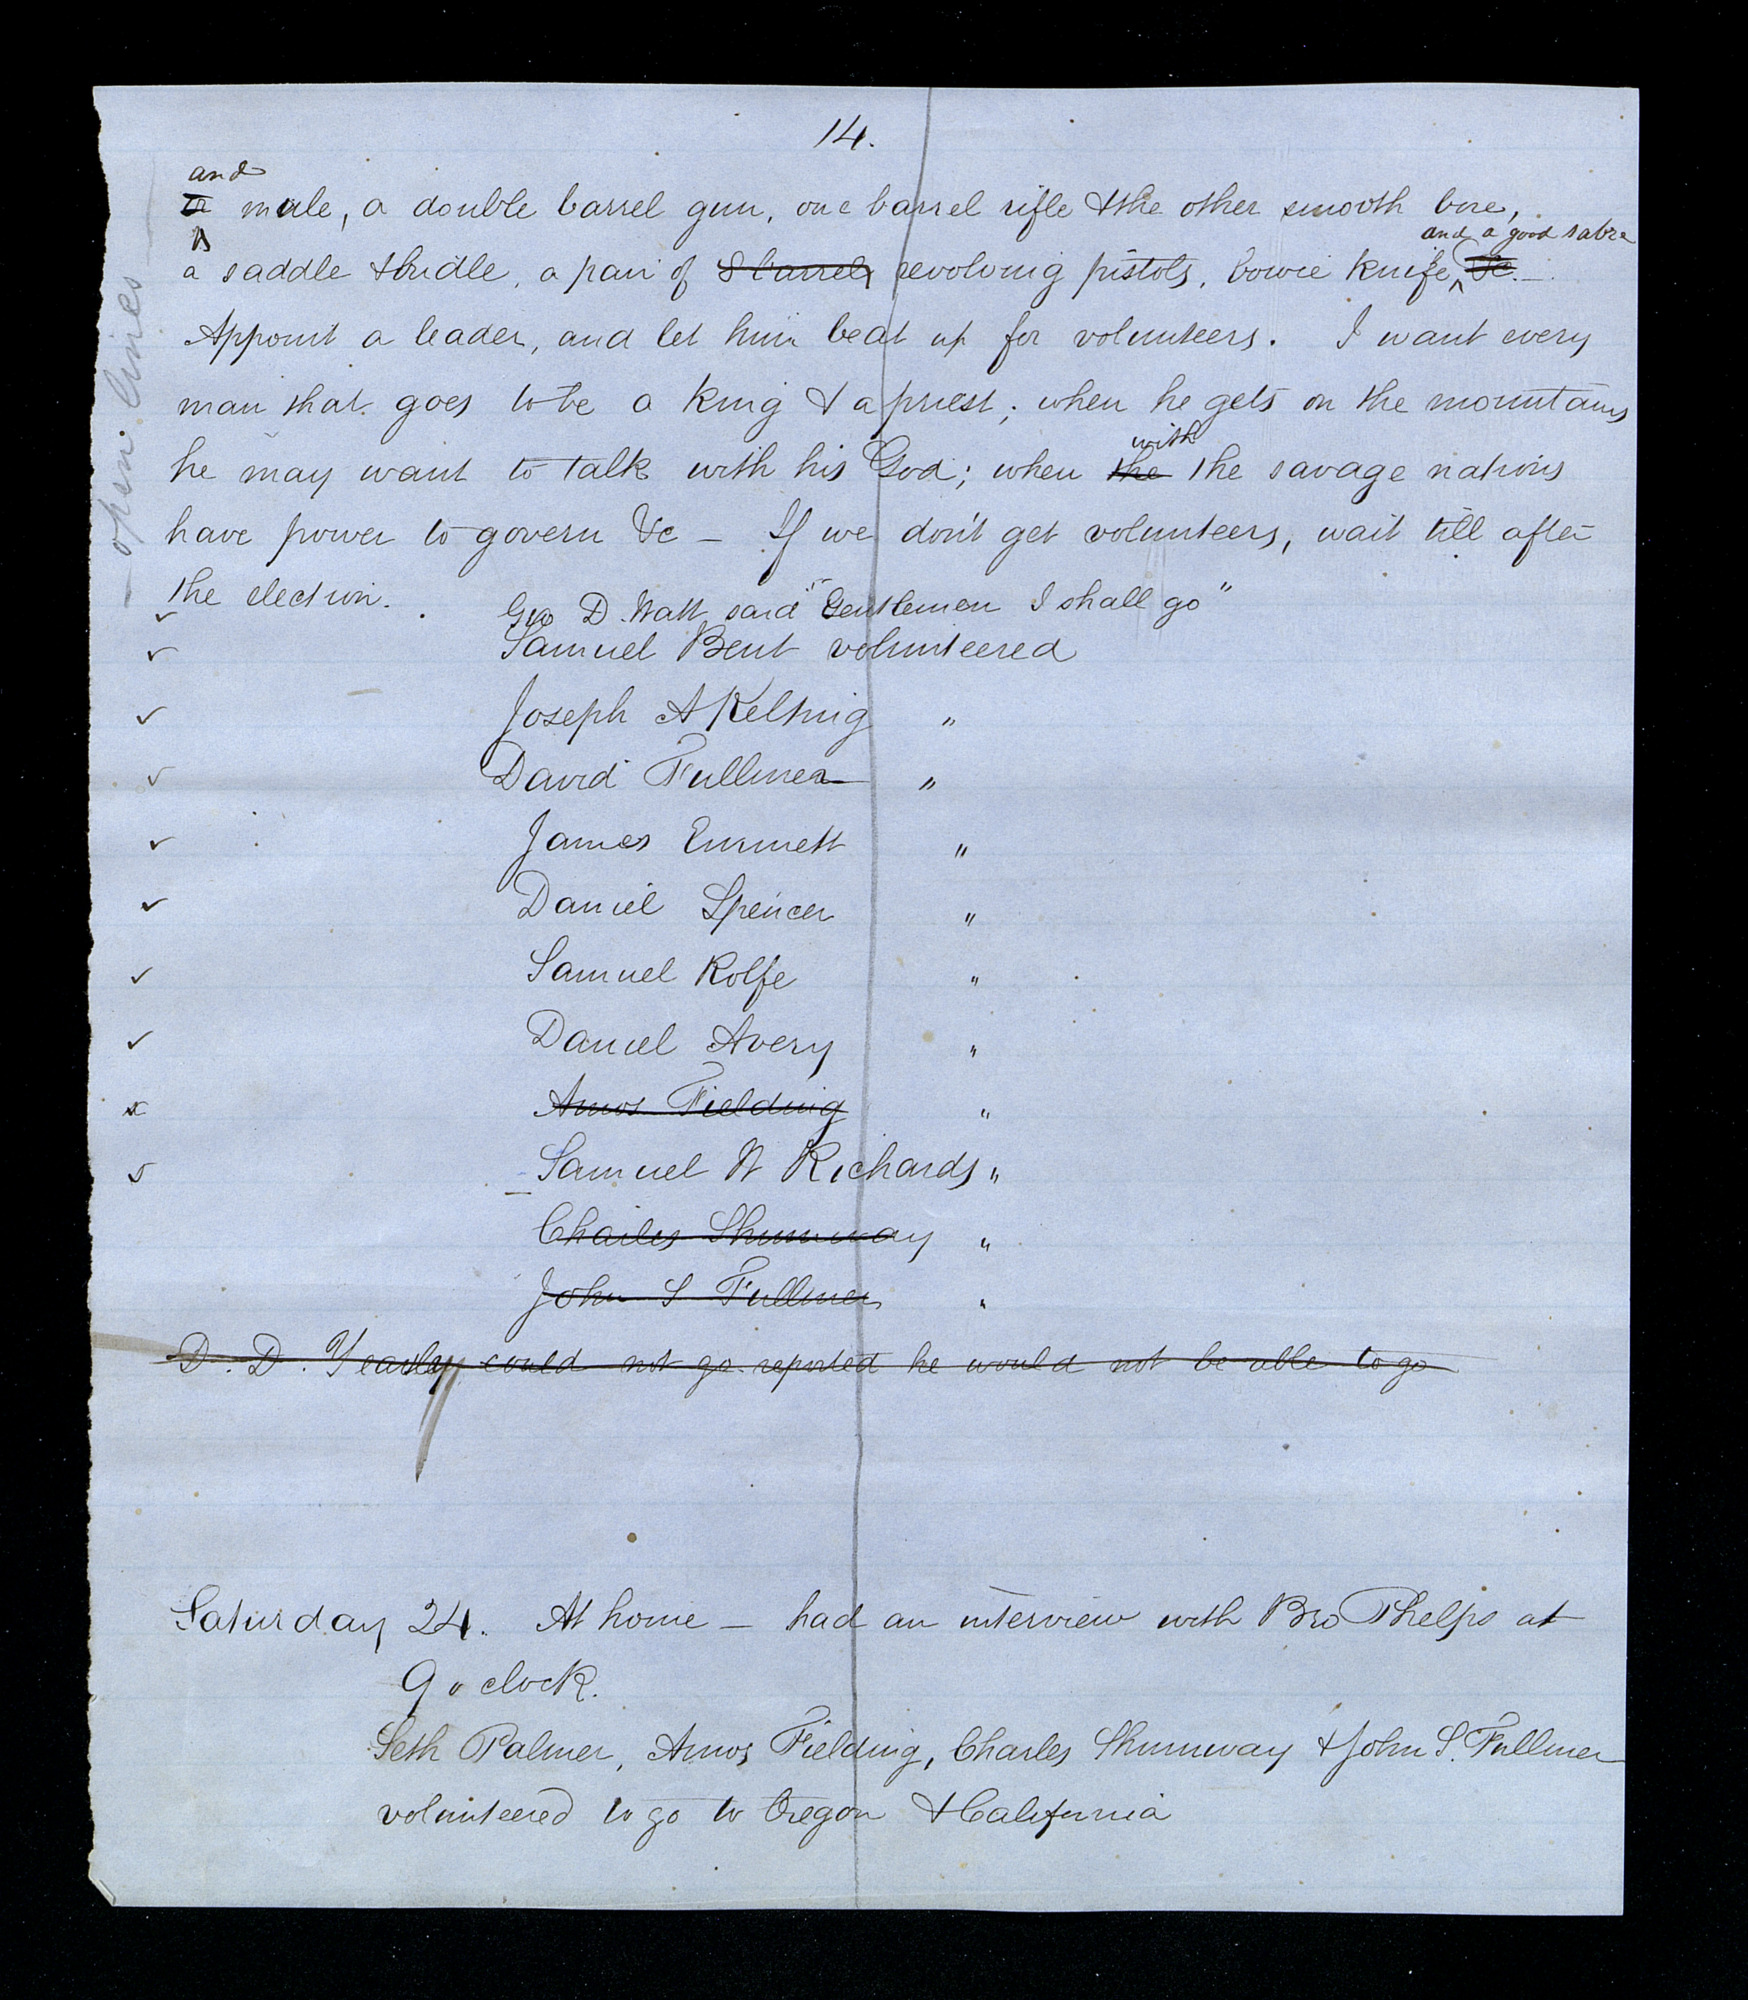 14.
and
a mule, a double barrel gun, one barrel rifle & the other smooth bore,
and a good sabre
a saddle & bridle, a pair of 8 barrels revolving pistols, bowie knife, &c. —
Appoint a leader, and let him beat up for volunteers. I want every
man that goes to be a king & a priest; when he gets on the mountains
he may want to talk with his God; when the with the savage nations
have power to govern &c — If we don't get volunteers, wait till after
the election.
Geo D. Watt said "Gentlemen I shall go"
✓ Samuel Bent volunteered
✓ Joseph A Kelting "
✓ David Fullmer "
✓ James Emmett "
✓ Daniel Spencer "
✓ Samuel Rolfe "
✓ Daniel Avery "
x Amos Fielding "
✓ Samuel W Richards "
Charles Shumway "
John S Fullmer "
D. D. Yearsly could not go. reported he would not be able to go
Saturday 24. At home — had an interview with Bro Phelps at
9 o clock.
Seth Palmer, Amos Fielding, Charles Shumway & John S. Fullmer
volunteered to go to Oregon & California
— open lines —